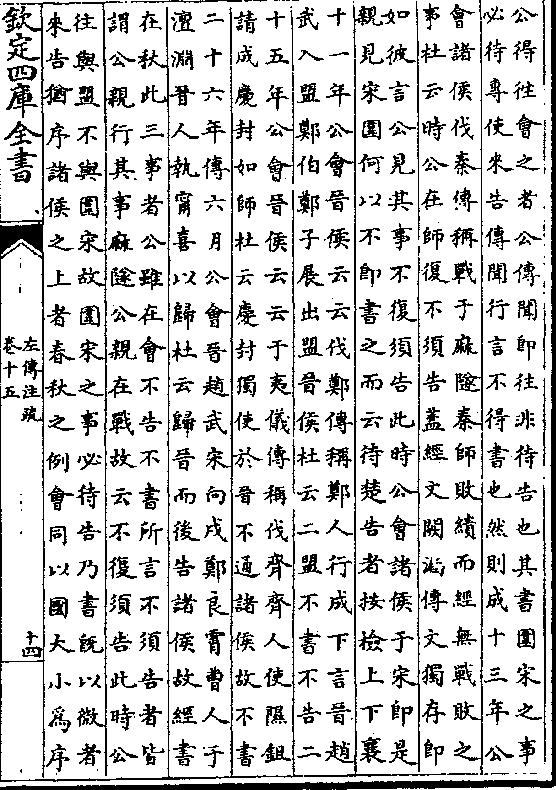 公得往會之者公傳聞即往非待告也其書圍宋之事
必待專使來告傳聞行言不得書也然則成十三年公
會諸侯伐秦傳稱戰于麻隧秦師敗績而經無戰敗之
事杜云時公在師復不須告蓋經文闕漏傳文獨存即
如彼言公見其事不復須告此時公會諸侯于宋即是
親見宋圍何以不即書之而云待楚告者按檢上下襄
十一年公會晉侯云云伐鄭傳稱鄭人行成下言晉趙
武入盟鄭伯鄭子展出盟晉侯杜云二盟不書不告二
十五年公會晉侯云云于夷儀傳稱伐齊齊人使隰鉏
請成慶封如師杜云慶封獨使於晉不通諸侯故不書
二十六年傳六月公會晉趙武宋向戌鄭良霄曹人于
澶淵晉人執甯喜以歸杜云歸晉而後告諸侯故經書
在秋此三事者公雖在會不告不書所言不須告者皆
謂公親行其事麻隧公親在戰故云不復須告此時公
往與盟不與圍宋故圍宋之事必待告乃書既以微者
來告猶序諸侯之上者春秋之例會同以國大小為序
欽定四庫全書
左傳注疏
卷十五
十四